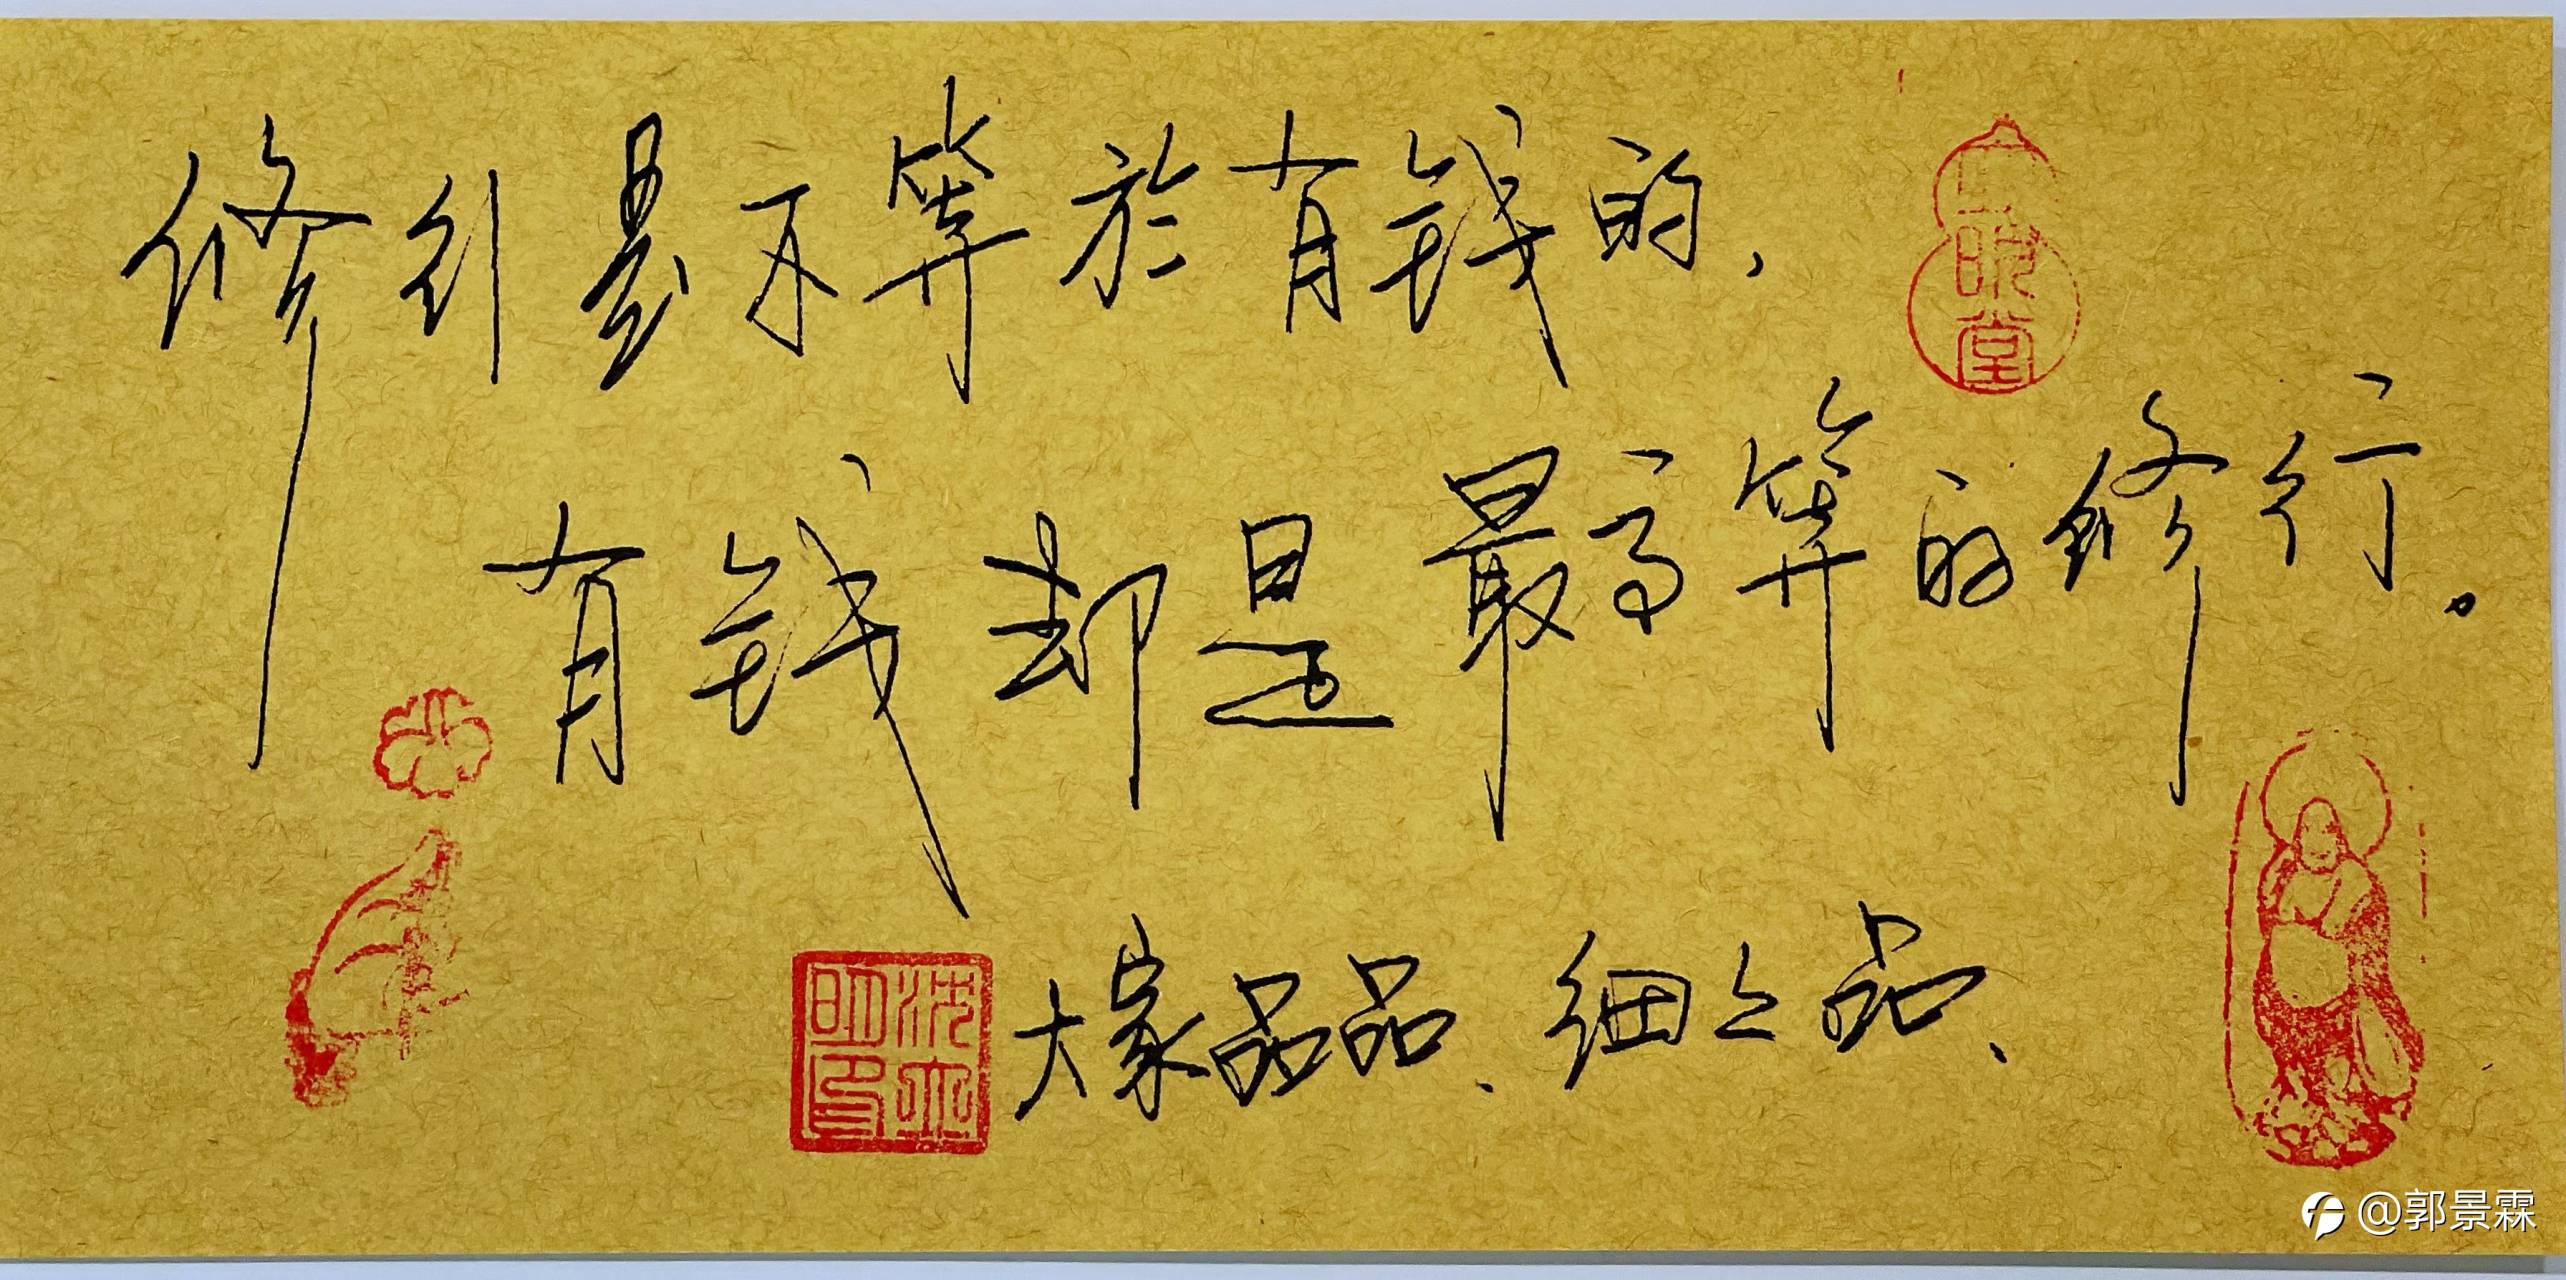 修行是不等於有钱的，
有钱却是最高等的修行。
大家品品、细々品、
@郭景霖